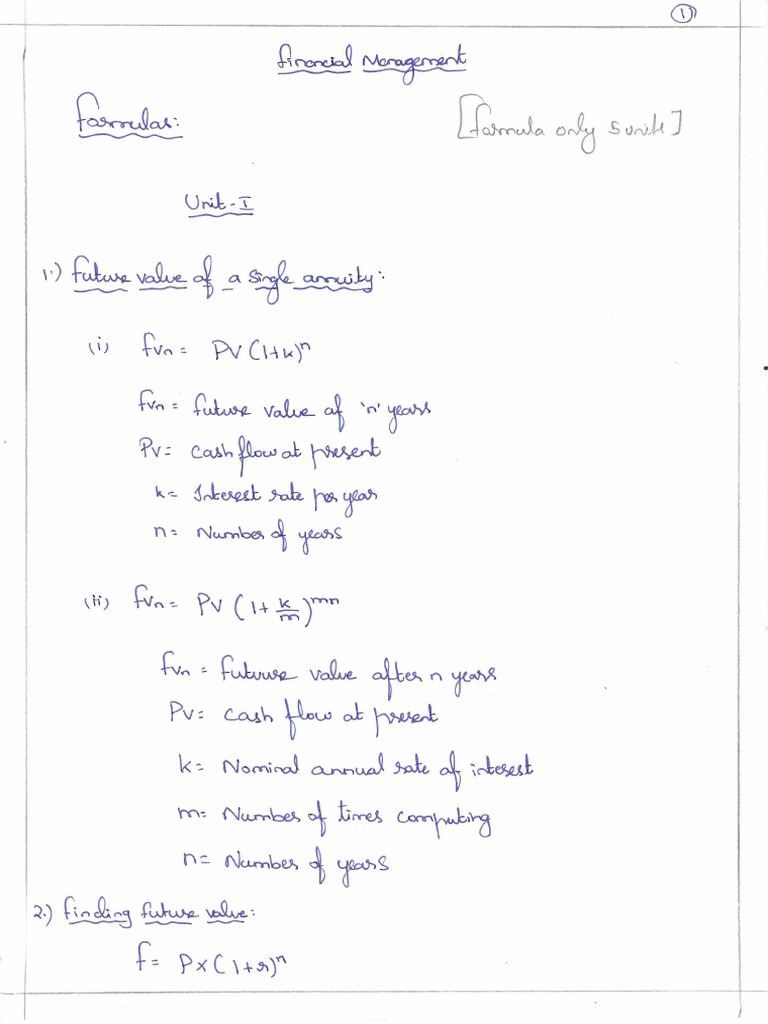 1
Financial Management
Formulas:
[Formula only 5 units]
Unit-I
1.) Future value of a single annuity:
(i) FVn = PV (1+k)^n
FVn = Future value of 'n' years
PV = Cash flow at present
k = Interest rate per year
n = Number of years
(ii) FVn = PV (1 + k/m)^mn
FVn = Future value after n years
PV = Cash flow at present
k = Nominal annual rate of interest
m = Number of times computing
n = Number of years
2.) Finding future value:
F = P×(1+r)^n